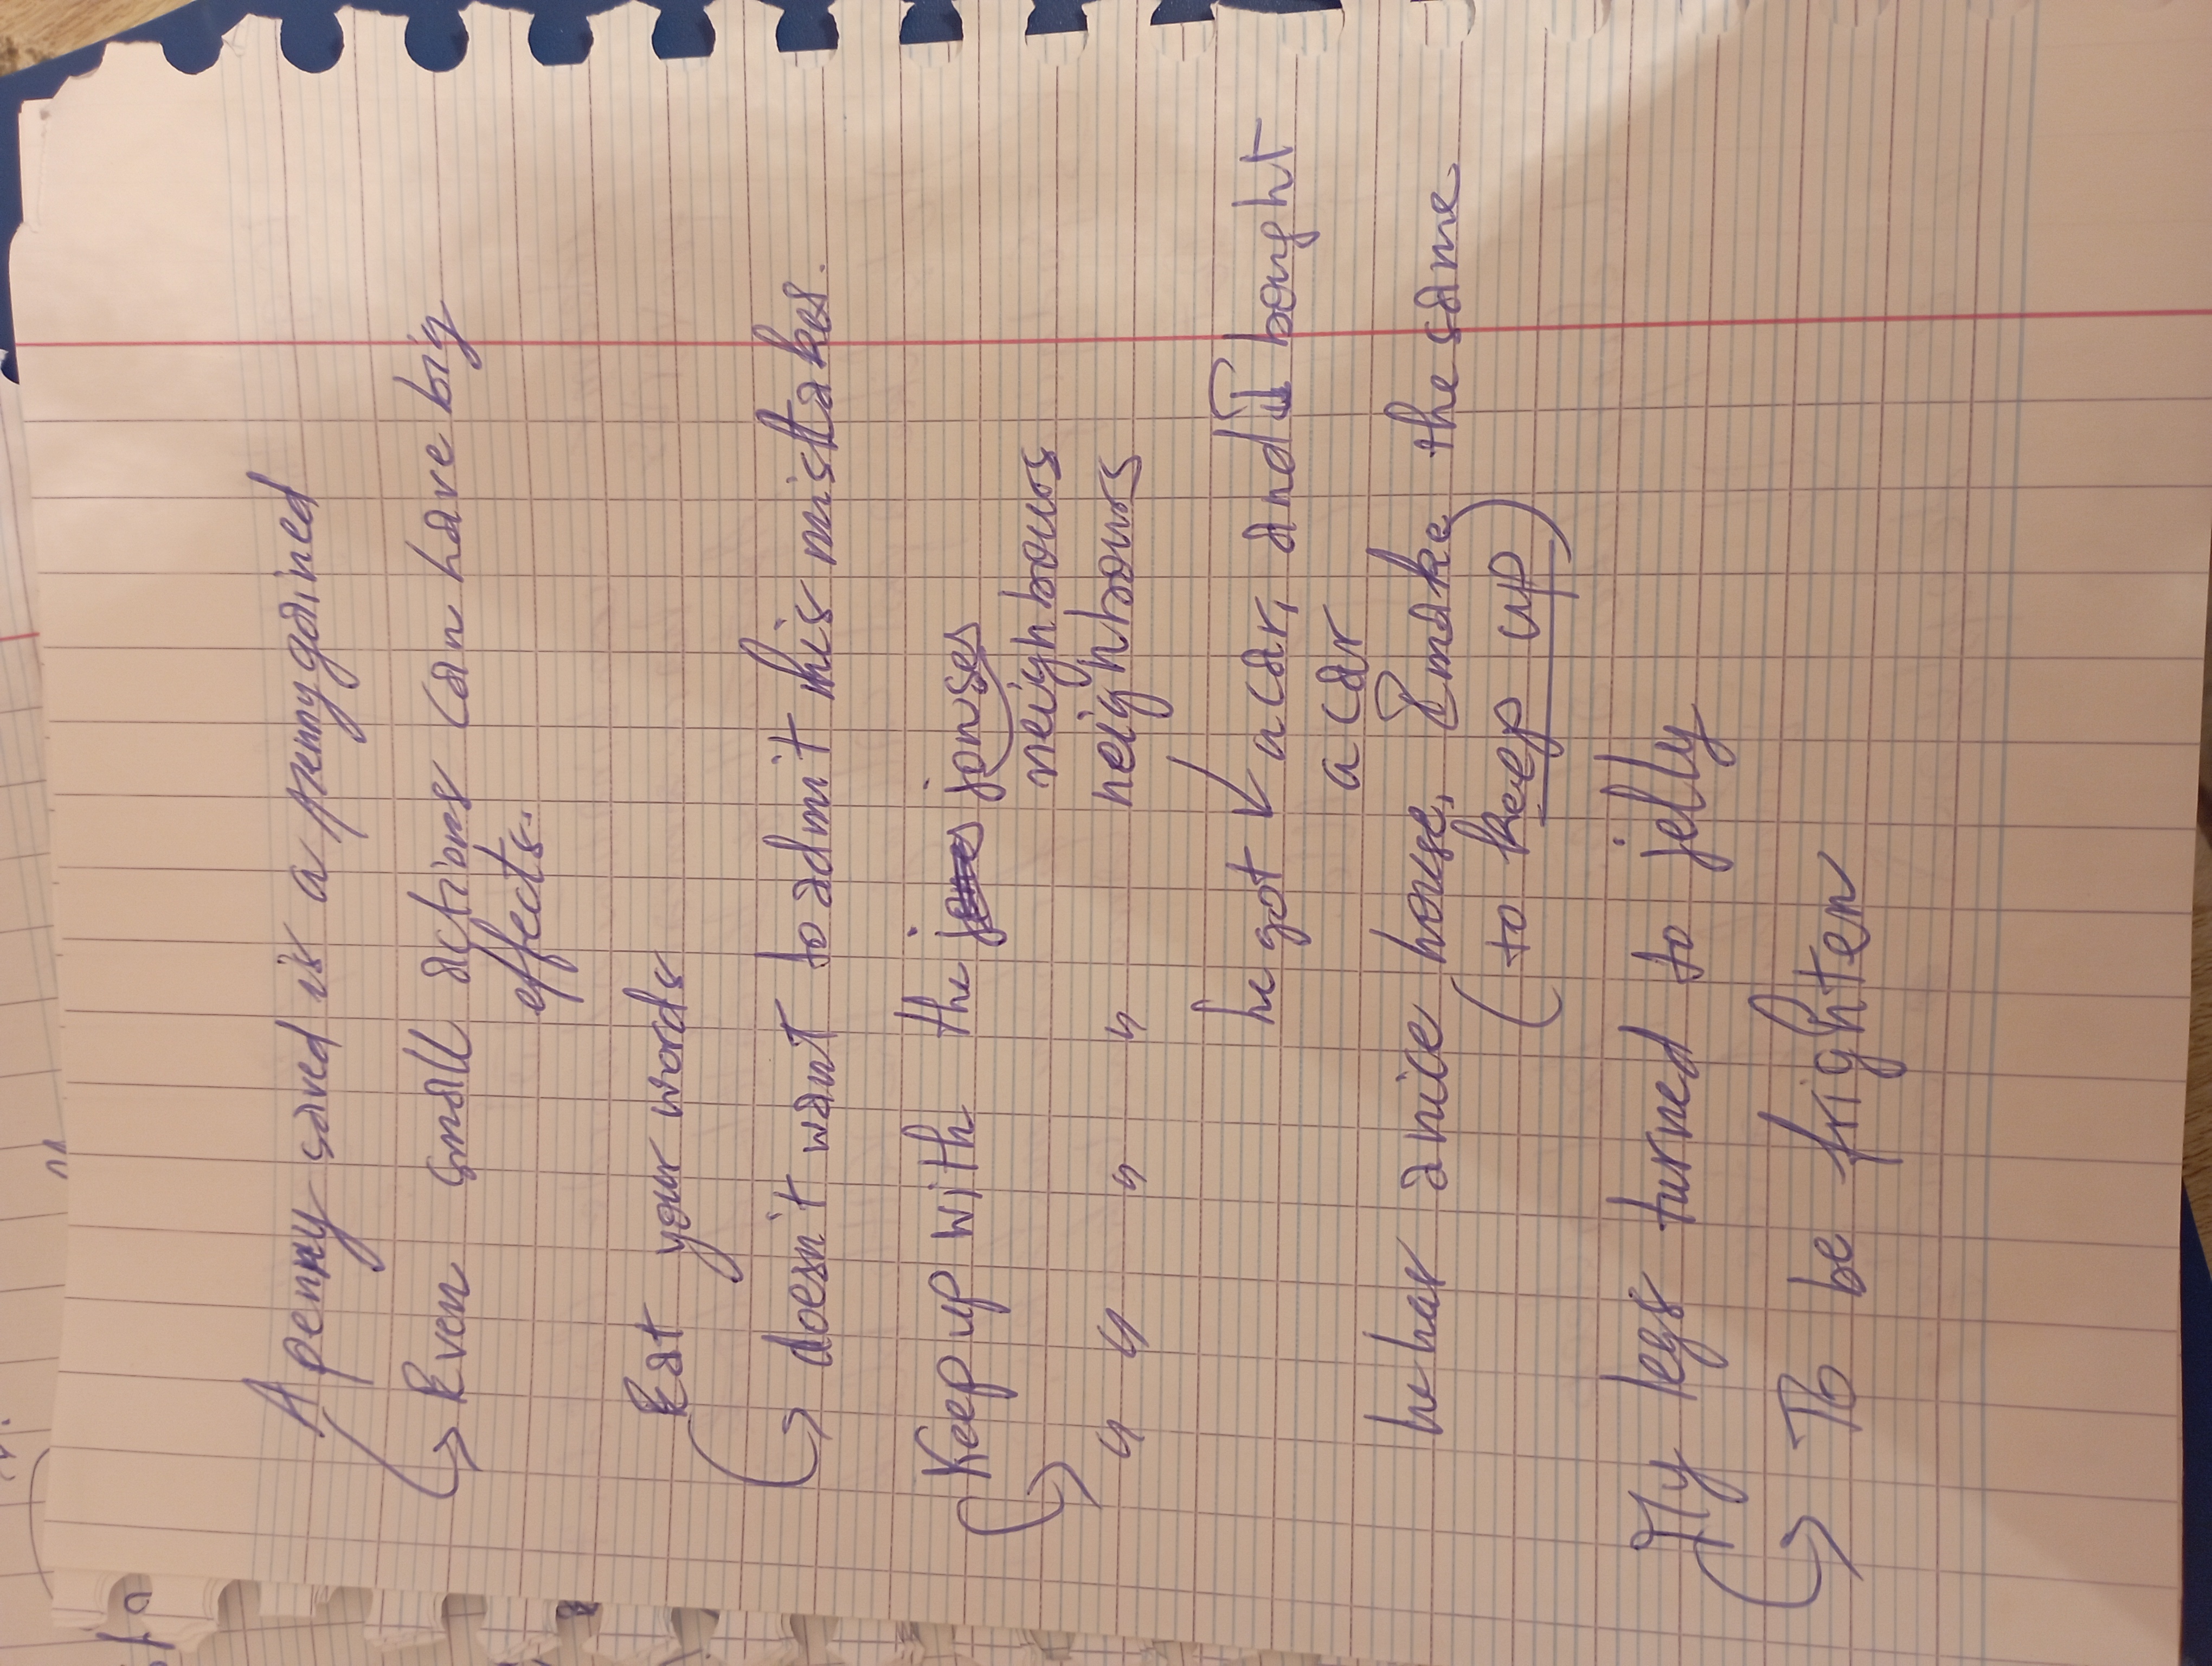 A penny saved is a penny gained
Even small actions can have big
effects.
Eat your words
doesn't want to admit his mistakes.
Keep up with the jones jonses
neighbours
" " " " neighbours
he got a car, and I bought
a car
he has a nice house, I make the same
(to keep up)
My legs turned to jelly
To be frighten